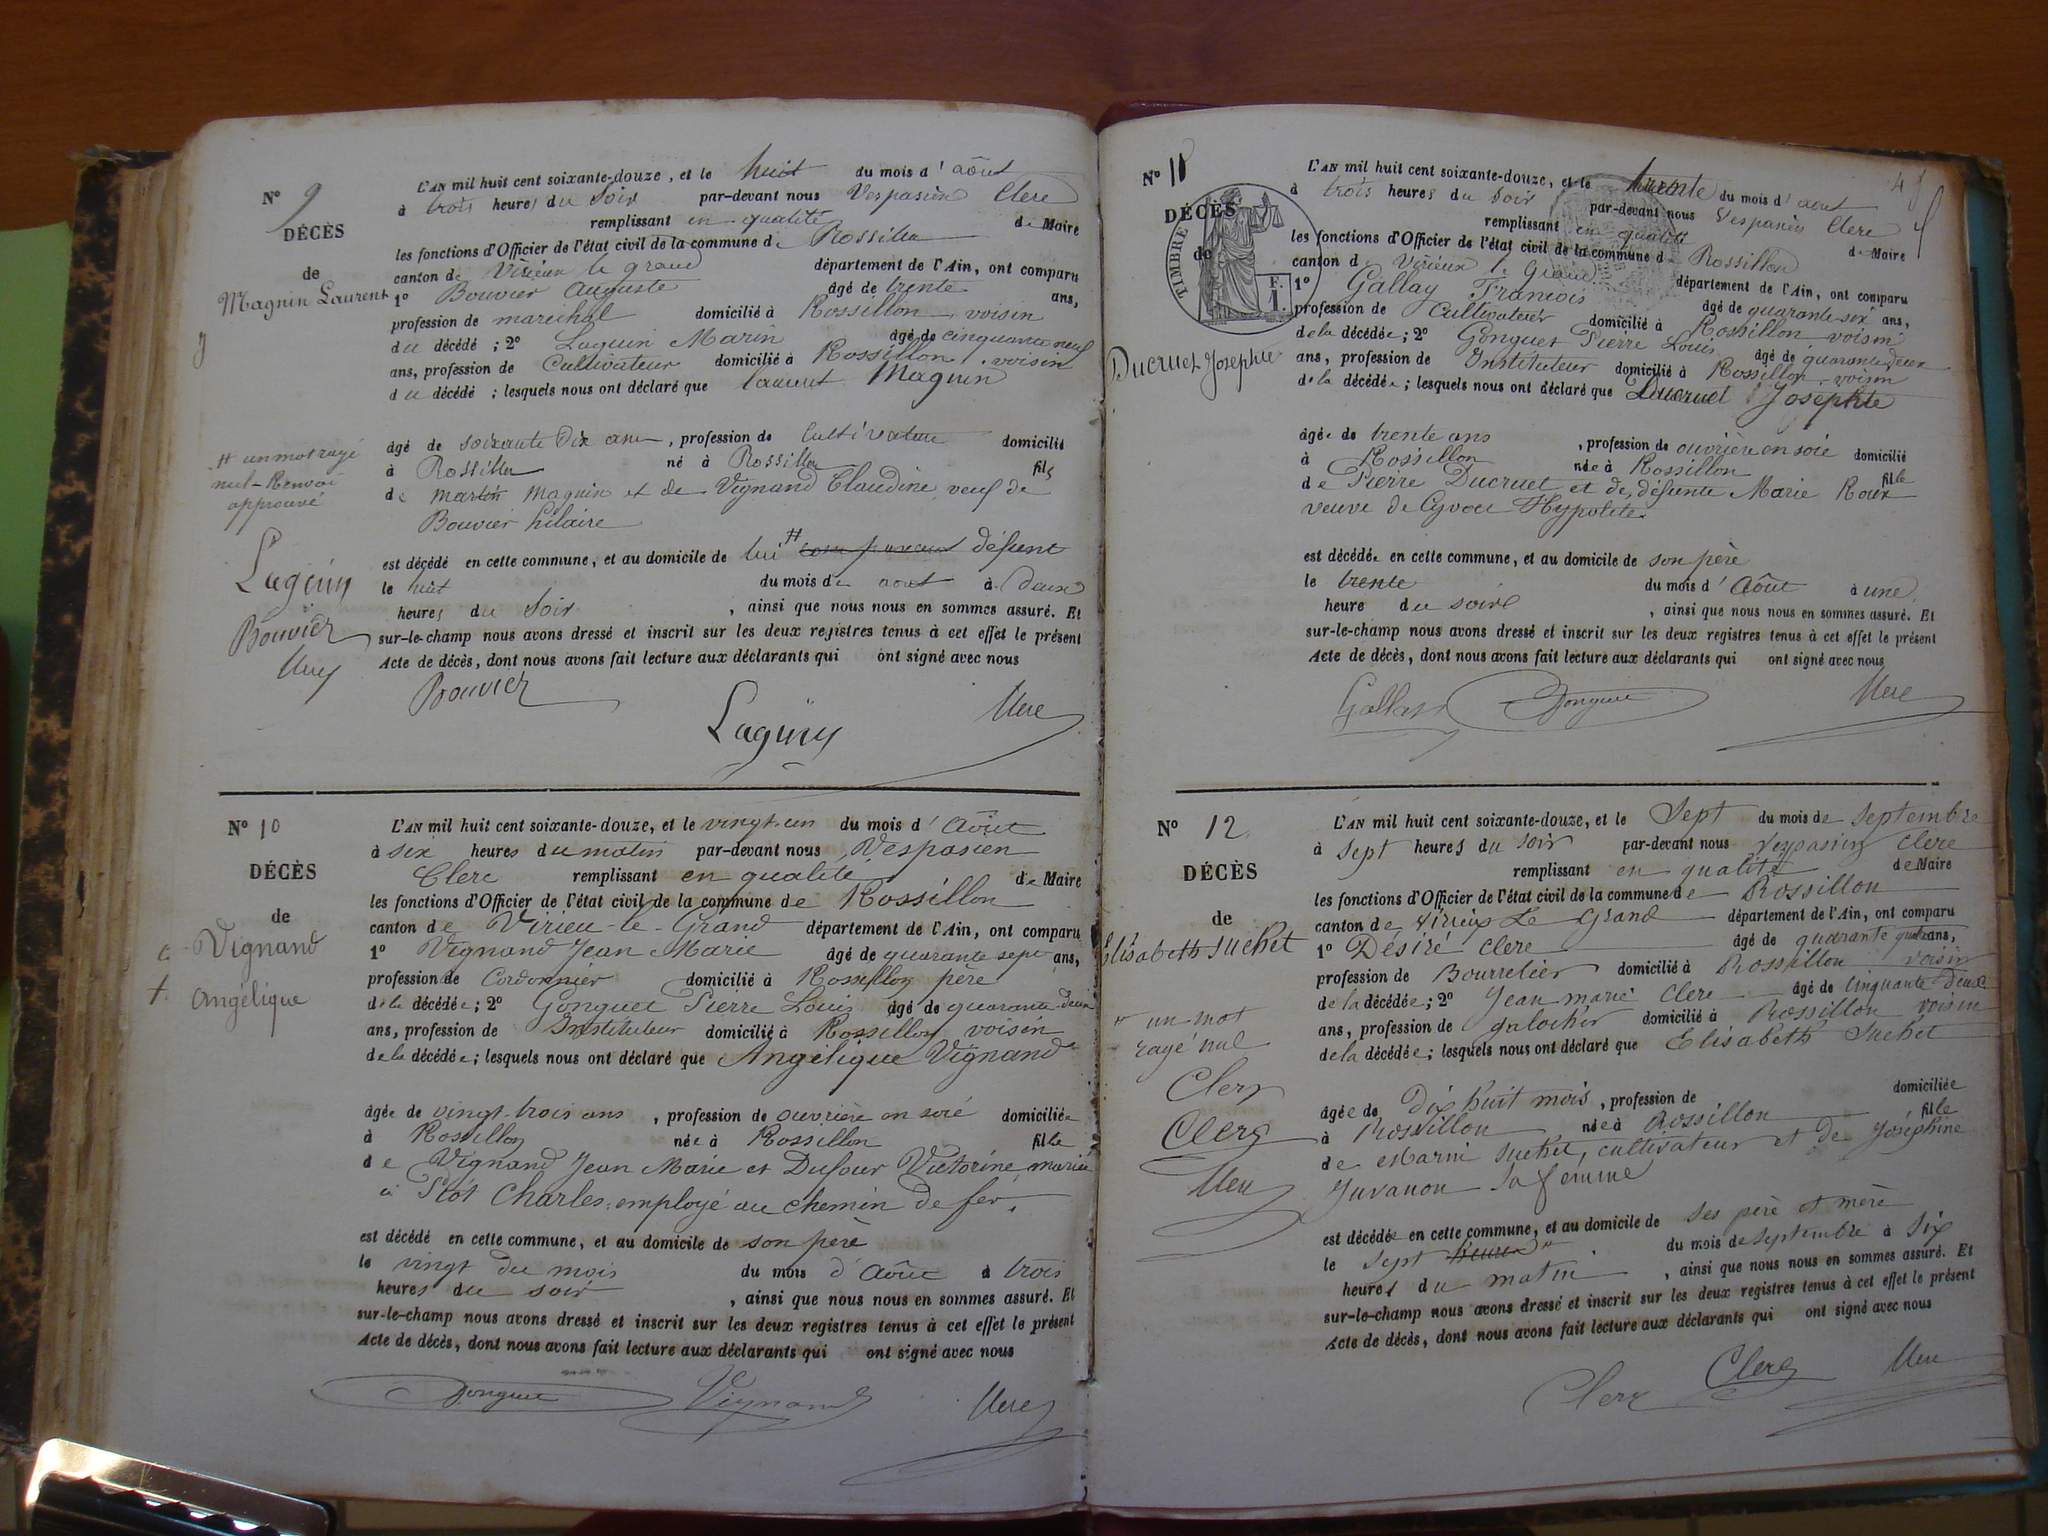 N° 9
DÉCÈS
de
Magnin Laurent
L'AN mil huit cent soixante-douze, et le huit du mois d' août
à trois heures du Soir par-devant nous Vespasien Clerc
remplissant en qualité de Maire
les fonctions d'Officier de l'état civil de la commune de Rossillon
canton de Virieux le grand département de l'Ain, ont comparu
1° Bouvier Auguste âgé de trente ans,
profession de marechal domicilié à Rossillon, voisin
du décédé ; 2° Laguin Marin âgé de cinquante neuf
ans, profession de Cultivateur domicilié à Rossillon, voisin
du décédé ; lesquels nous ont déclaré que laurent Magnin
âgé de soixante Dix ans, profession de Cultivateur domicilié
à Rossillon né à Rossillon fils
de martin Magnin et de Vignand Claudine, veuf de
Bouvier hilaire
est décédé en cette commune, et au domicile de lui # défunt
le huit du mois de aout à Deux
heures du Soir, ainsi que nous nous en sommes assuré. Et
sur-le-champ nous avons dressé et inscrit sur les deux registres tenus à cet effet le présent
Acte de décès, dont nous avons fait lecture aux déclarants qui ont signé avec nous
# un mot rayé
nul - Renvoi
approuvé
Laguin
Bouvier
Clerc
Bouvier
Laguin
Clerc
N° 10
DÉCÈS
de
Vignand
Angélique
L'AN mil huit cent soixante-douze, et le vingt-un du mois d' Août
à six heures du matin par-devant nous Vespasien
Clerc remplissant en qualité de Maire
les fonctions d'Officier de l'état civil de la commune de Rossillon
canton de Virieu-le-Grand département de l'Ain, ont comparu
1° Vignand Jean Marie âgé de quarante sept ans,
profession de Cordonnier domicilié à Rossillon père
de la décédée; 2° Gonguet Pierre Louis âgé de quarante deux
ans, profession de Instituteur domicilié à Rossillon voisin
de la décédée; lesquels nous ont déclaré que Angélique Vignand
âgée de vingt-trois ans, profession de ouvrière en soie domiciliée
à Rossillon née à Rossillon fille
de Vignand Jean Marie et Dufour Victorine, mariée
à Charles, employé au chemin de fer.
est décédé en cette commune, et au domicile de son père
le vingt du mois du mois d' Août à trois
heures du soir, ainsi que nous nous en sommes assuré. Et
sur-le-champ nous avons dressé et inscrit sur les deux registres tenus à cet effet le présent
Acte de décès, dont nous avons fait lecture aux déclarants qui ont signé avec nous
Gonguet Vignand Clerc
N° 11
DÉCÈS
de
TIMBRE
F.
1.
Ducruet Josephte
L'AN mil huit cent soixante-douze, et le trente du mois d' aout
à trois heures du soir par-devant nous Vespasien Clerc
remplissant en qualité de Maire
les fonctions d'Officier de l'état civil de la commune de Rossillon
canton de Virieux le Grand département de l'Ain, ont comparu
1° Gallay Francois âgé de quarante-six ans,
profession de Cultivateur domicilié à Rossillon voisin
de la décédée; 2° Gonguet Pierre Louis âgé de quarante deux
ans, profession de Instituteur domicilié à Rossillon, voisin
de la décédée; lesquels nous ont déclaré que Ducruet Josephte
âgée de trente ans, profession de ouvrière en soie domicilié
à Rossillon née à Rossillon fille
de Pierre Ducruet et de défunte Marie Roux
veuve de Hypolite.
est décédée en cette commune, et au domicile de son père
le trente du mois d' Août à une
heure du soir, ainsi que nous nous en sommes assuré. Et
sur-le-champ nous avons dressé et inscrit sur les deux registres tenus à cet effet le présent
Acte de décès, dont nous avons fait lecture aux déclarants qui ont signé avec nous
Gallay Gonguet Clerc
N° 12
DÉCÈS
de
Elisabeth Suchet
L'AN mil huit cent soixante-douze, et le Sept du mois de Septembre
à Sept heures du soir par-devant nous Vespasien Clerc
remplissant en qualité de Maire
les fonctions d'Officier de l'état civil de la commune de Rossillon
canton de Virieux Le Grand département de l'Ain, ont comparu
1° Désiré Clerc âgé de quarante quatre ans,
profession de Bourrelier domicilié à Rossillon voisin
de la décédée; 2° Jean marie Clerc âgé de cinquante Deux
ans, profession de galochier domicilié à Rossillon voisin
de la décédée; lesquels nous ont déclaré que Elisabeth Suchet
âgée de Dix huit mois, profession de domiciliée
à Rossillon née à Rossillon fille
de Marin Suchet, cultivateur et de Joséphine
Juvanon Sa femme
est décédée en cette commune, et au domicile de ses père et mère
le Sept heures # du mois de Septembre à Six
heures du matin, ainsi que nous nous en sommes assuré. Et
sur-le-champ nous avons dressé et inscrit sur les deux registres tenus à cet effet le présent
Acte de décès, dont nous avons fait lecture aux déclarants qui ont signé avec nous
# un mot
rayé nul
Clerc
Clerc
Clerc
Clerc Clerc Clerc